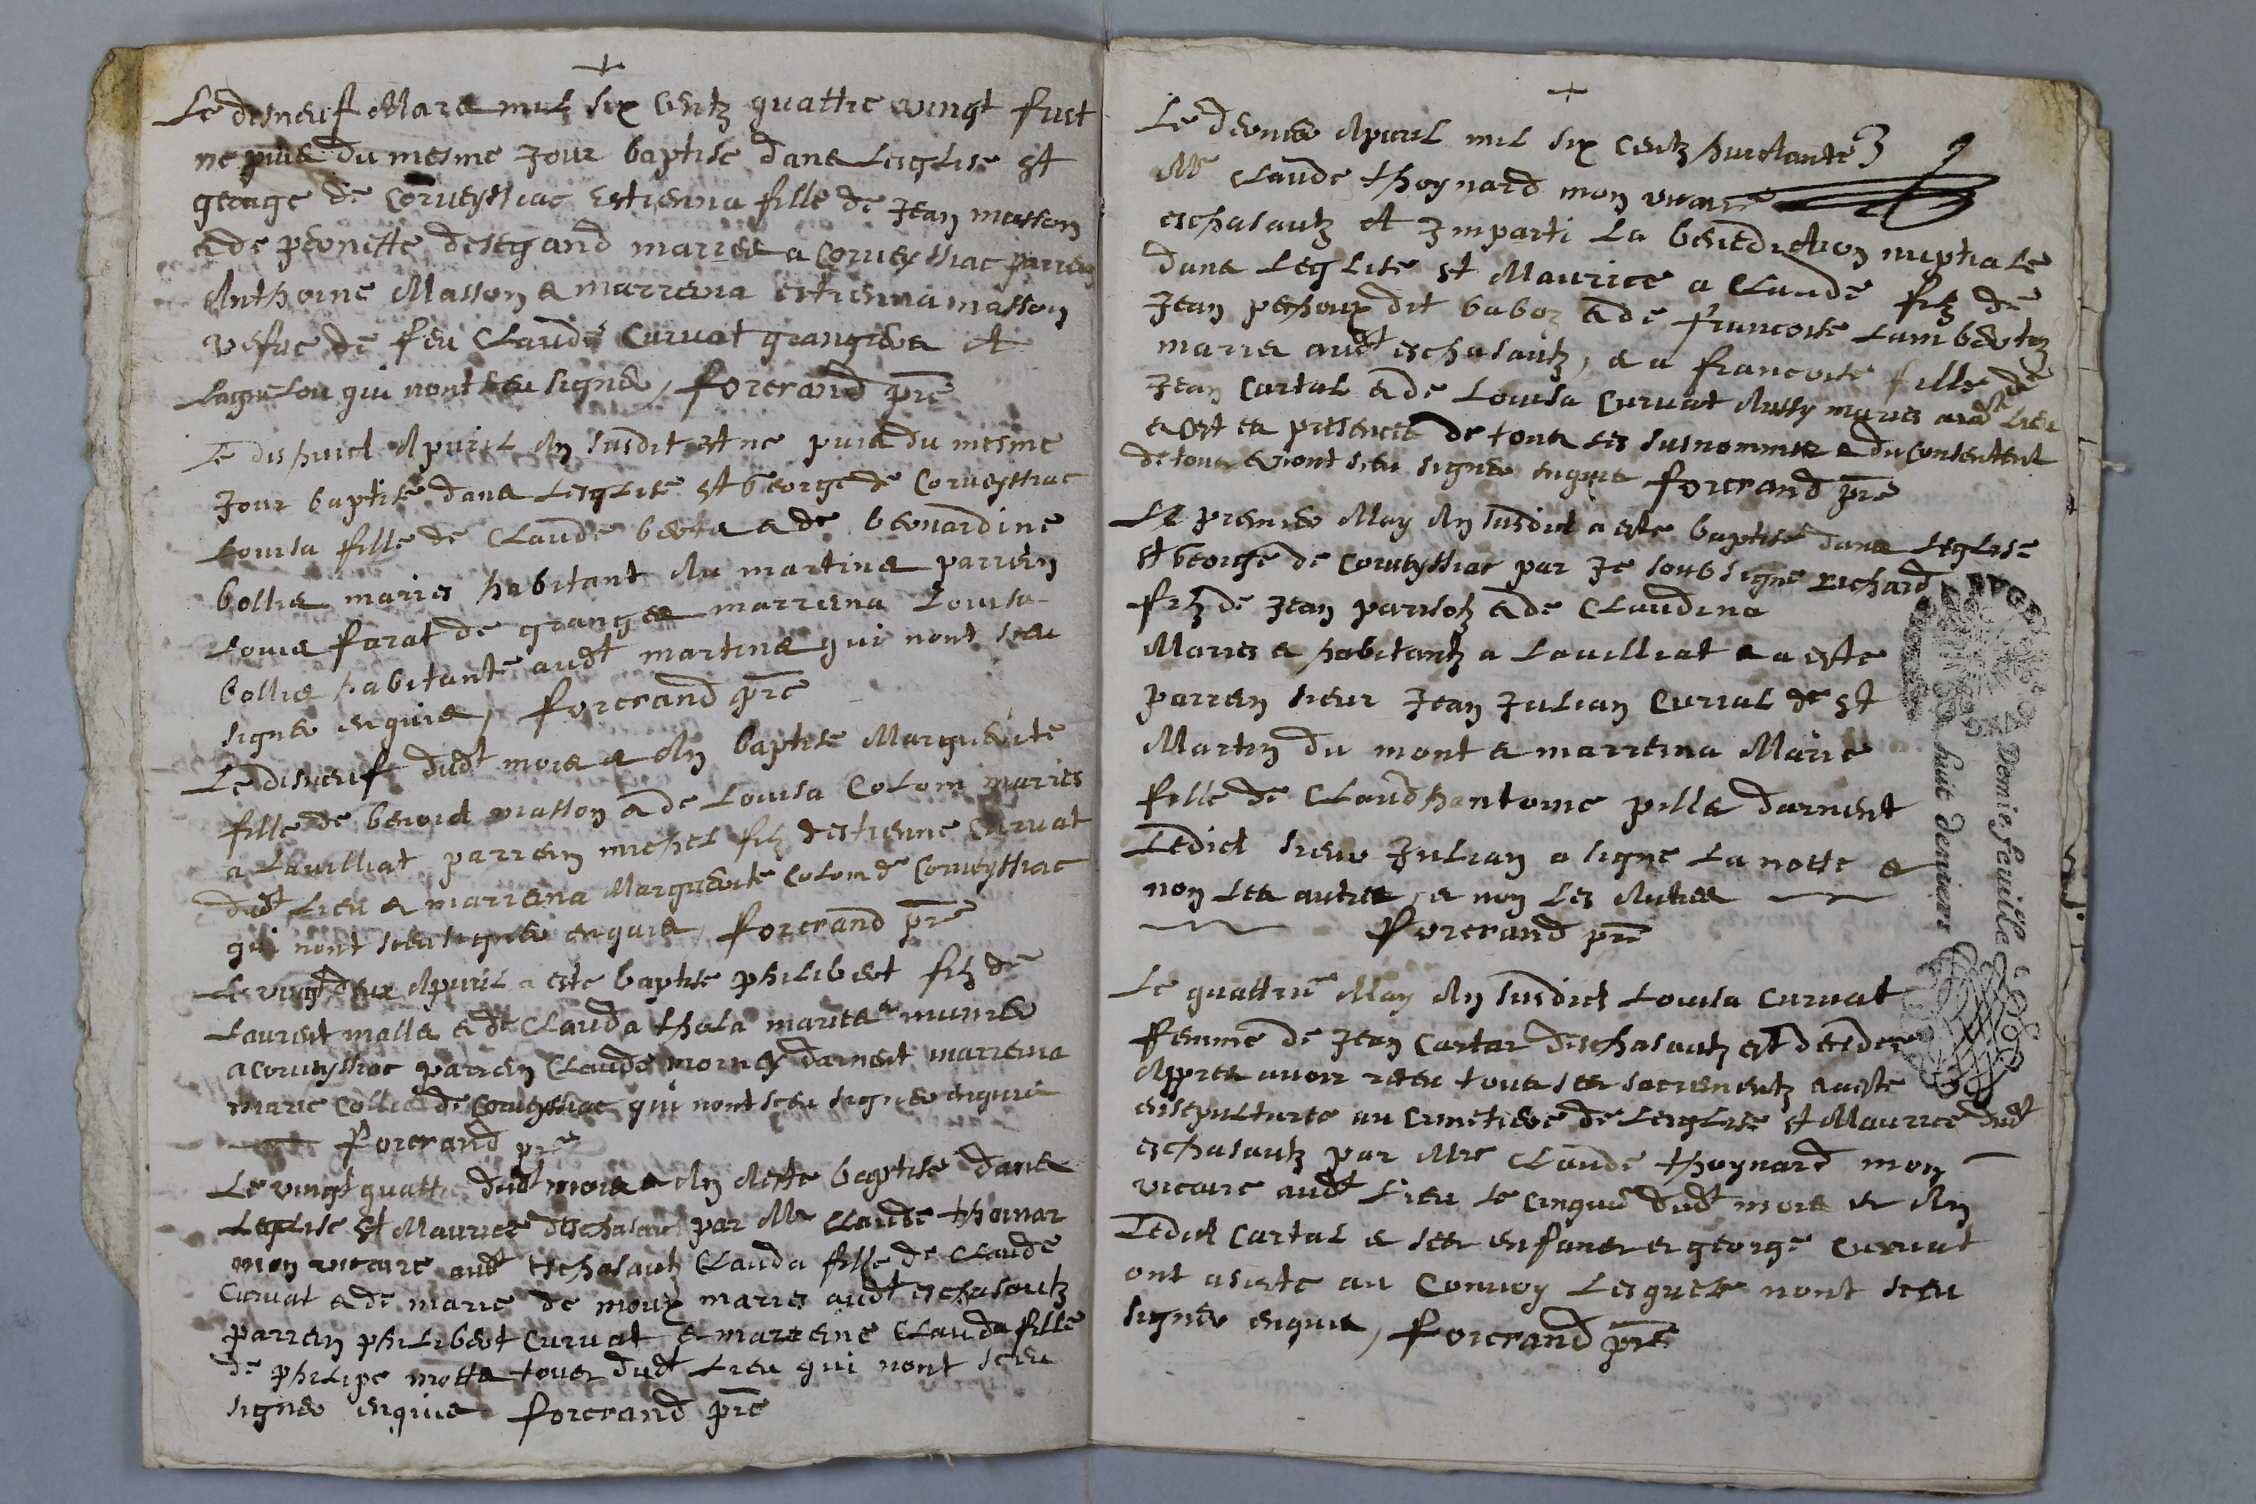 Le disneuf Mars mil six centz quattre vingt fust
ne puis du mesme Jour baptise dans Lesglise st
george de Corveyssiac Estienna fille de Jean masson
& de pernette desegand mariea a Corveyssiac parrein
Anthoine Masson & marreina estienna masson
vefue de feu Claude Curvat grangiers et
qui nont sceu signer, forcrand pre
Le dishuict Apuril An susdit est ne puis du mesme
Jour baptise dans Lesglise st George de Corveyssiac
Louisa fille de Claude & de bernardine
bollia maries habitant Au martina parrein
Louis farat de granges marreina Louisa
bollia habitante audt martina qui nont sceu
signer enquis, forcrand pre
Le disneuf dudt mois & An baptise Marguerite
fille de benoict masson & de Louisa Colom maries
a Lauilliat parrein michel filz destienne Curvat
dudt Lieu & marreina Marguerite Colom de Corveyssiac
qui nont sceu signer enquis, forcrand pre
Le vingt deux Apuril a este baptise philibert filz de
Laurent malla & de Clauda thola maries
a Corveyssiac parrein Claude morney darnent marreina
marie Collia de Corveyssiac qui nont sceu signer enquis
forcrand pre
Le vingt quattre dudt mois & An Aeste baptise dans
Leglise st Maurice deschasaux par Mre Claude thoinar
mon vicaire audt eschasautz Clauda fille de Claude
Curvat & de marie de moux maries audt eschasautz
parrein philibert Curvat & marreine Clauda fille
de philipe motta tous dudt Lieu qui nont sceu
signer enquis forcrand pre
Le dernier Apuril mil six centz huictante
Mre Claude thoynard mon vicaire
eschasautz At Imparti La benediction nuptiale
dans Leglise st Maurice a Claude filz de
Jean pethoux dit baboz & de francoise Lambertz
maries audt eschasautz, & a francoise fille de
Jean Cartal & de Louisa Curvat Aussy maries audt Lieu
& cest en presences de tous les susnommes & du consentent
de tous & nont sceu signer enquis forcrand pre
Le premier May An susdict a este baptise dans Leglise
st George de Corveyssiac par Je soubsigne richard
filz de Jean parisotz & de Claudina
Maries & habitantz a Lauilliat & a este
parrein sieur Jean Julian Curial de st
Martin du mont & marreina Marie
fille de Claudhantoine pilla darnent
Ledict sieur Julian a signe La notte &
non les autres, & non Les Autres
forcrand pre
Le quattrie May An susdict Louisa Curvat
femme de Jean Cartar deschasautz est decedee
Appres auoir receu tous ses sacrementz & aeste
ensepulturee au cimetiere de Lesglise st Maurice dudt
eschasautz par Mre Claude thoynard mon
vicaire audt Lieu le cinquie dudt mois & An
Ledict Cartal & ses enfans & george Curvat
ont asiste au Convoy Lesquels nont sceu
signer enquis, forcrand pre
Demie feuille
huit deniers